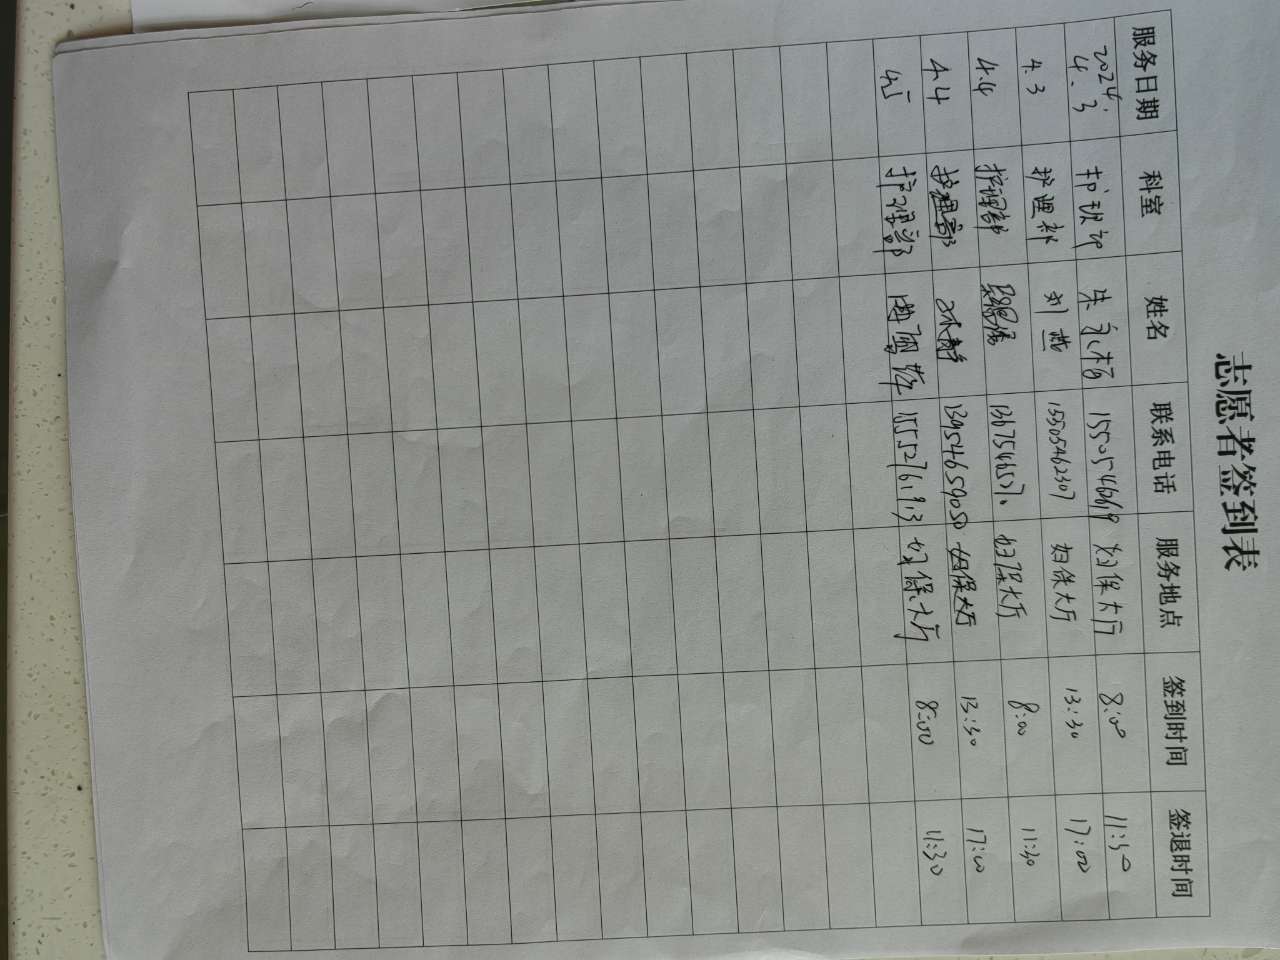 志愿者签到表
服务日期 科室 姓名 联系电话 服务地点 签到时间 签退时间
2024.4.3 护理部 朱 15505466619 妇保大厅 8:00 11:30
4.3 护理部 刘燕 15505462307 妇保大厅 13:30 17:00
4.4 护理部 妇保大厅 8:00 11:30
4.4 护理部 13954659050 妇保大厅 13:30 17:00
4.5 护理部 15552761913 妇保大厅 8:00 11:30